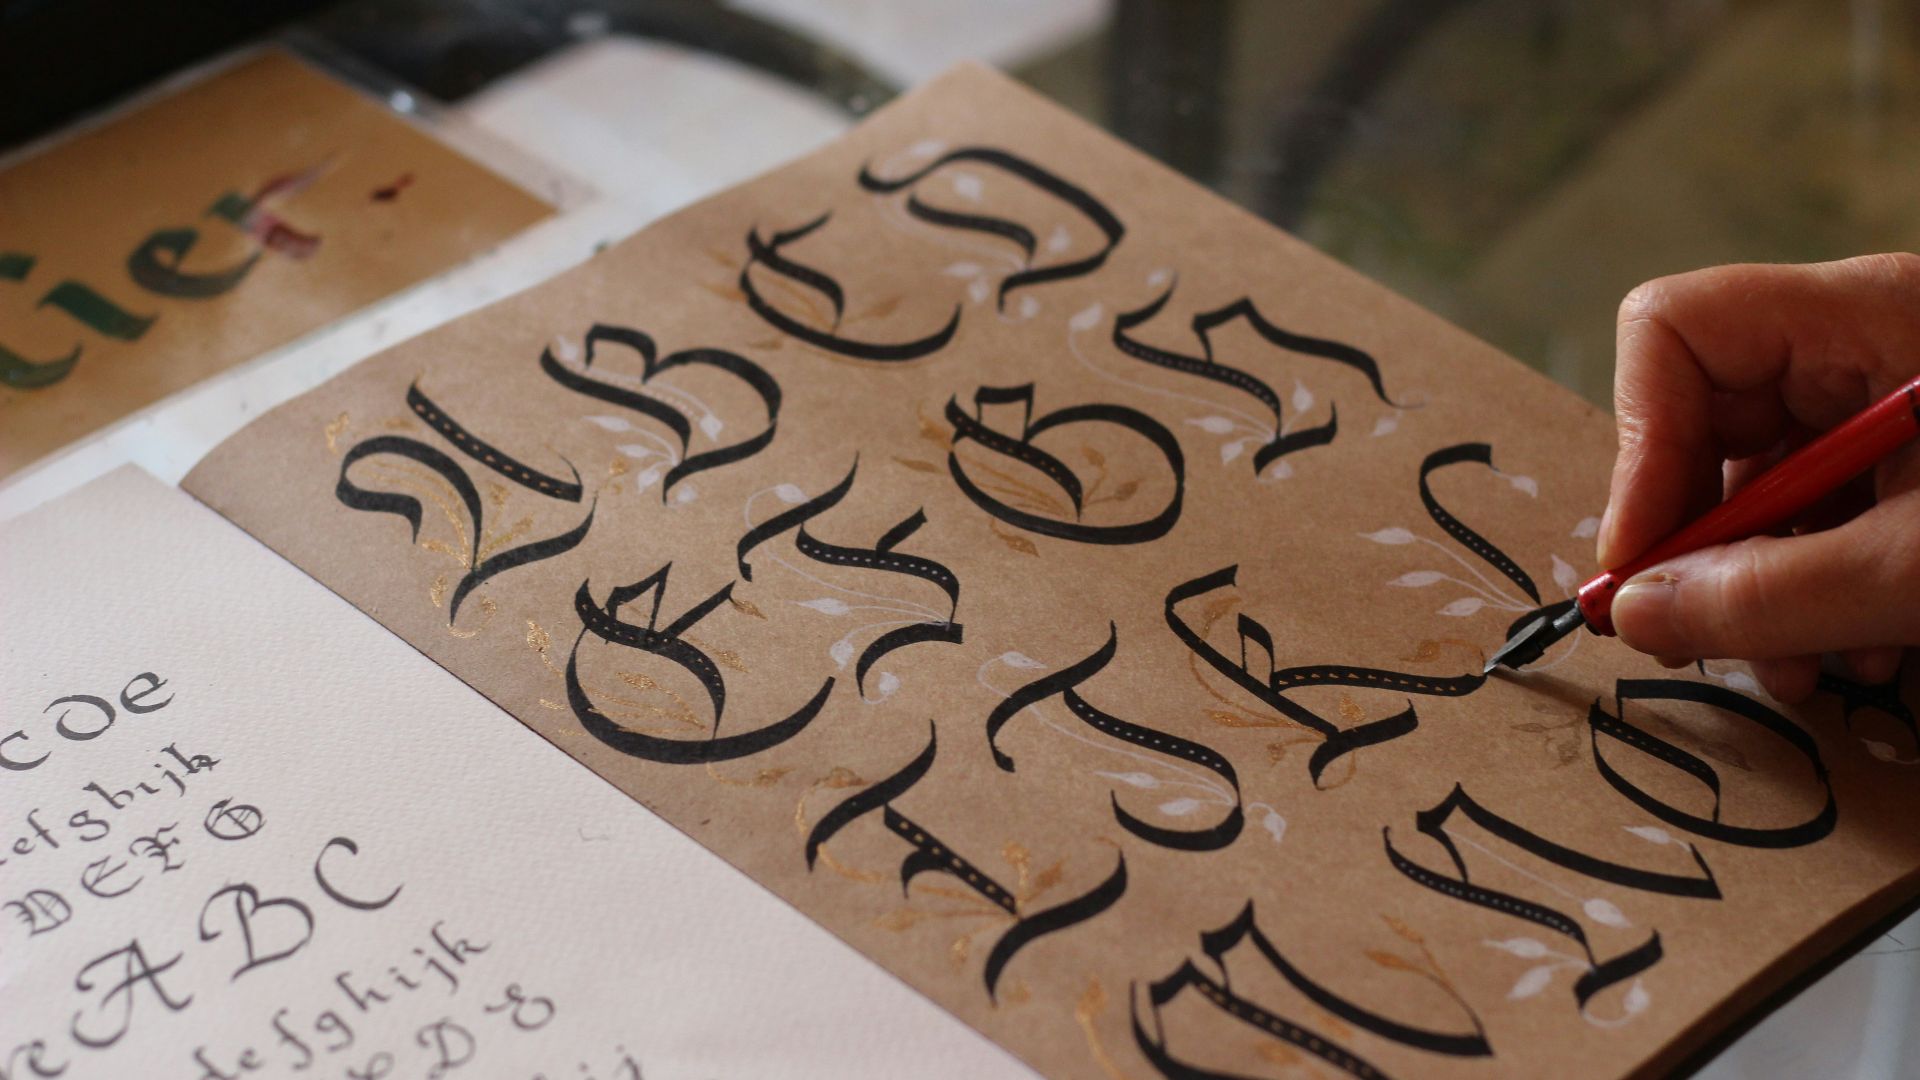 ier
A B C D
E F G H
I J K L
M N O
c d e
e f g h i j k
D E F G
A B C
d e f g h i j k
D E
i j